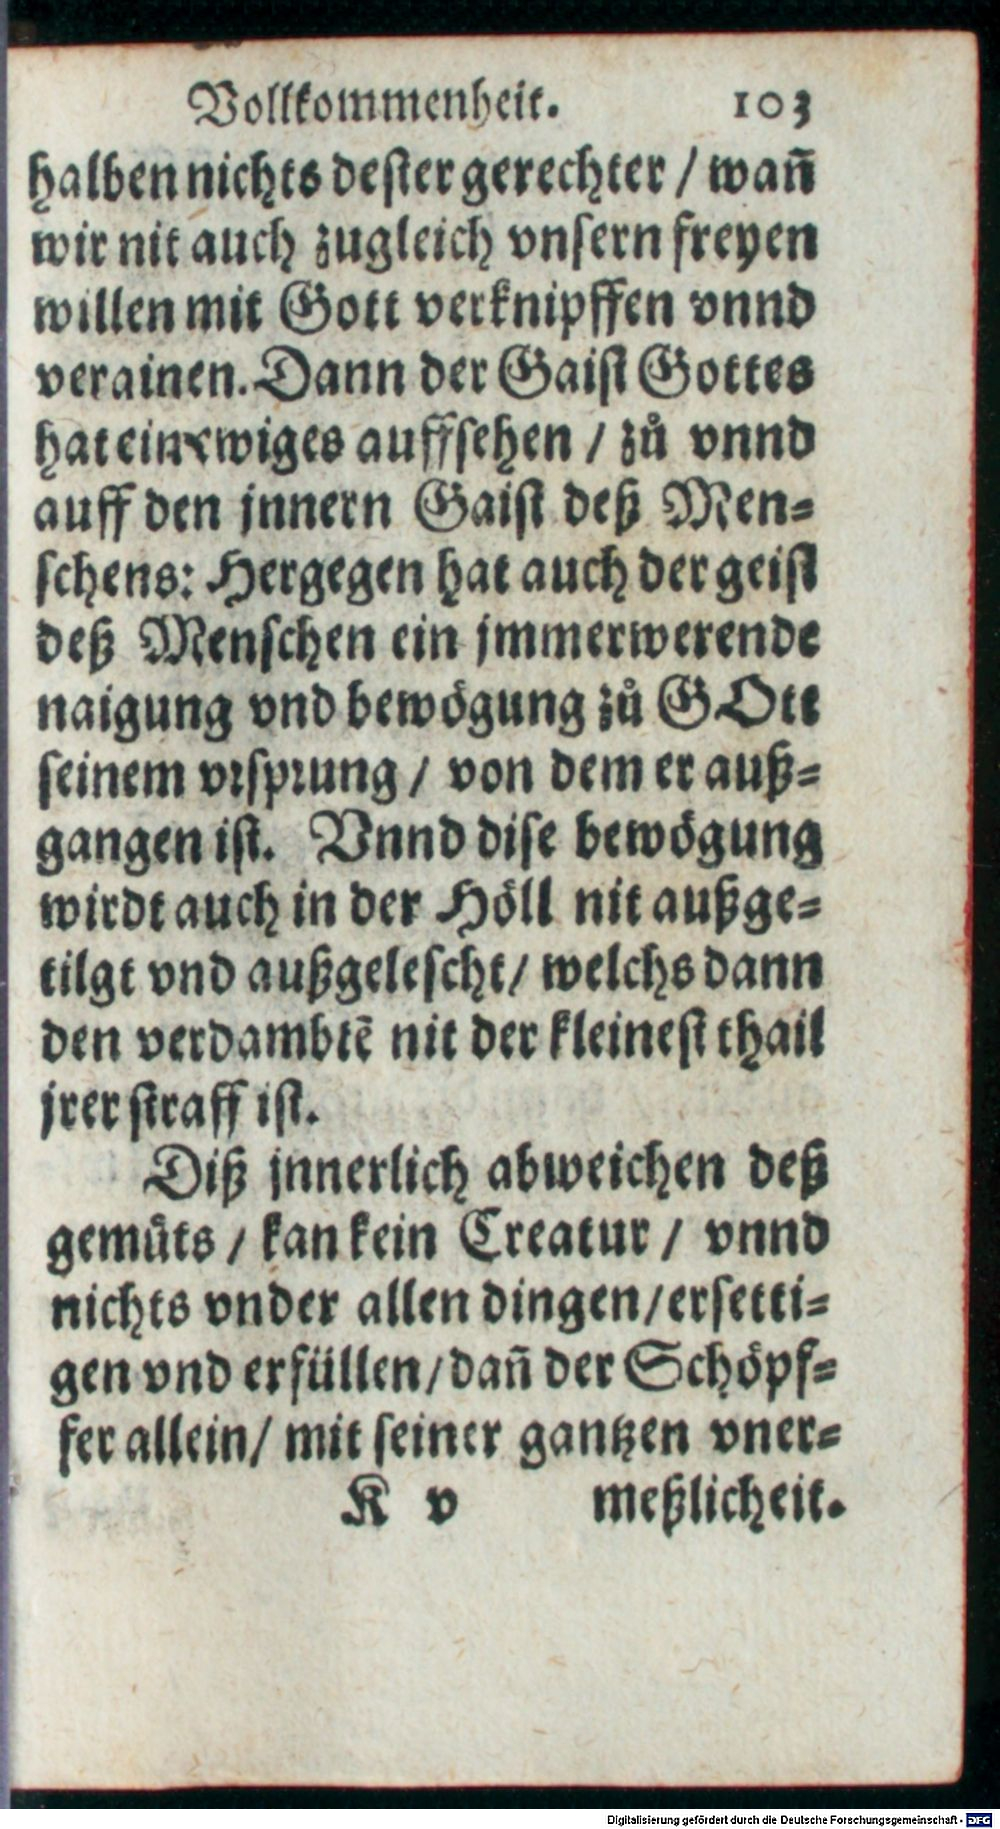 Vollkommenheit. 103
halben nichts dester gerechter / wañ
wir nit auch zugleich vnsern freyen
willen mit Gott verknipffen vnnd
verainen. Dann der Gaist Gottes
hat ein ewiges auffsehen / zů vnnd
auff den jnnern Gaist deß Men=
schens: Hergegen hat auch der geist
deß Menschen ein jmmerwerende
naigung vnd bewögung zů GOtt
seinem vrsprung / von dem er auß=
gangen ist. Vnnd dise bewögung
wirdt auch in der Höll nit außge=
tilgt vnd außgelescht / welchs dann
den verdambtē nit der kleinest thail
jrer straff ist.
Diß jnnerlich abweichen deß
gemüts / kan kein Creatur / vnnd
nichts vnder allen dingen / ersetti=
gen vnd erfüllen / dañ der Schöpf=
fer allein / mit seiner gantzen vner=
K v meßlicheit.
Digitalisierung gefördert durch die Deutsche Forschungsgemeinschaft - DFG